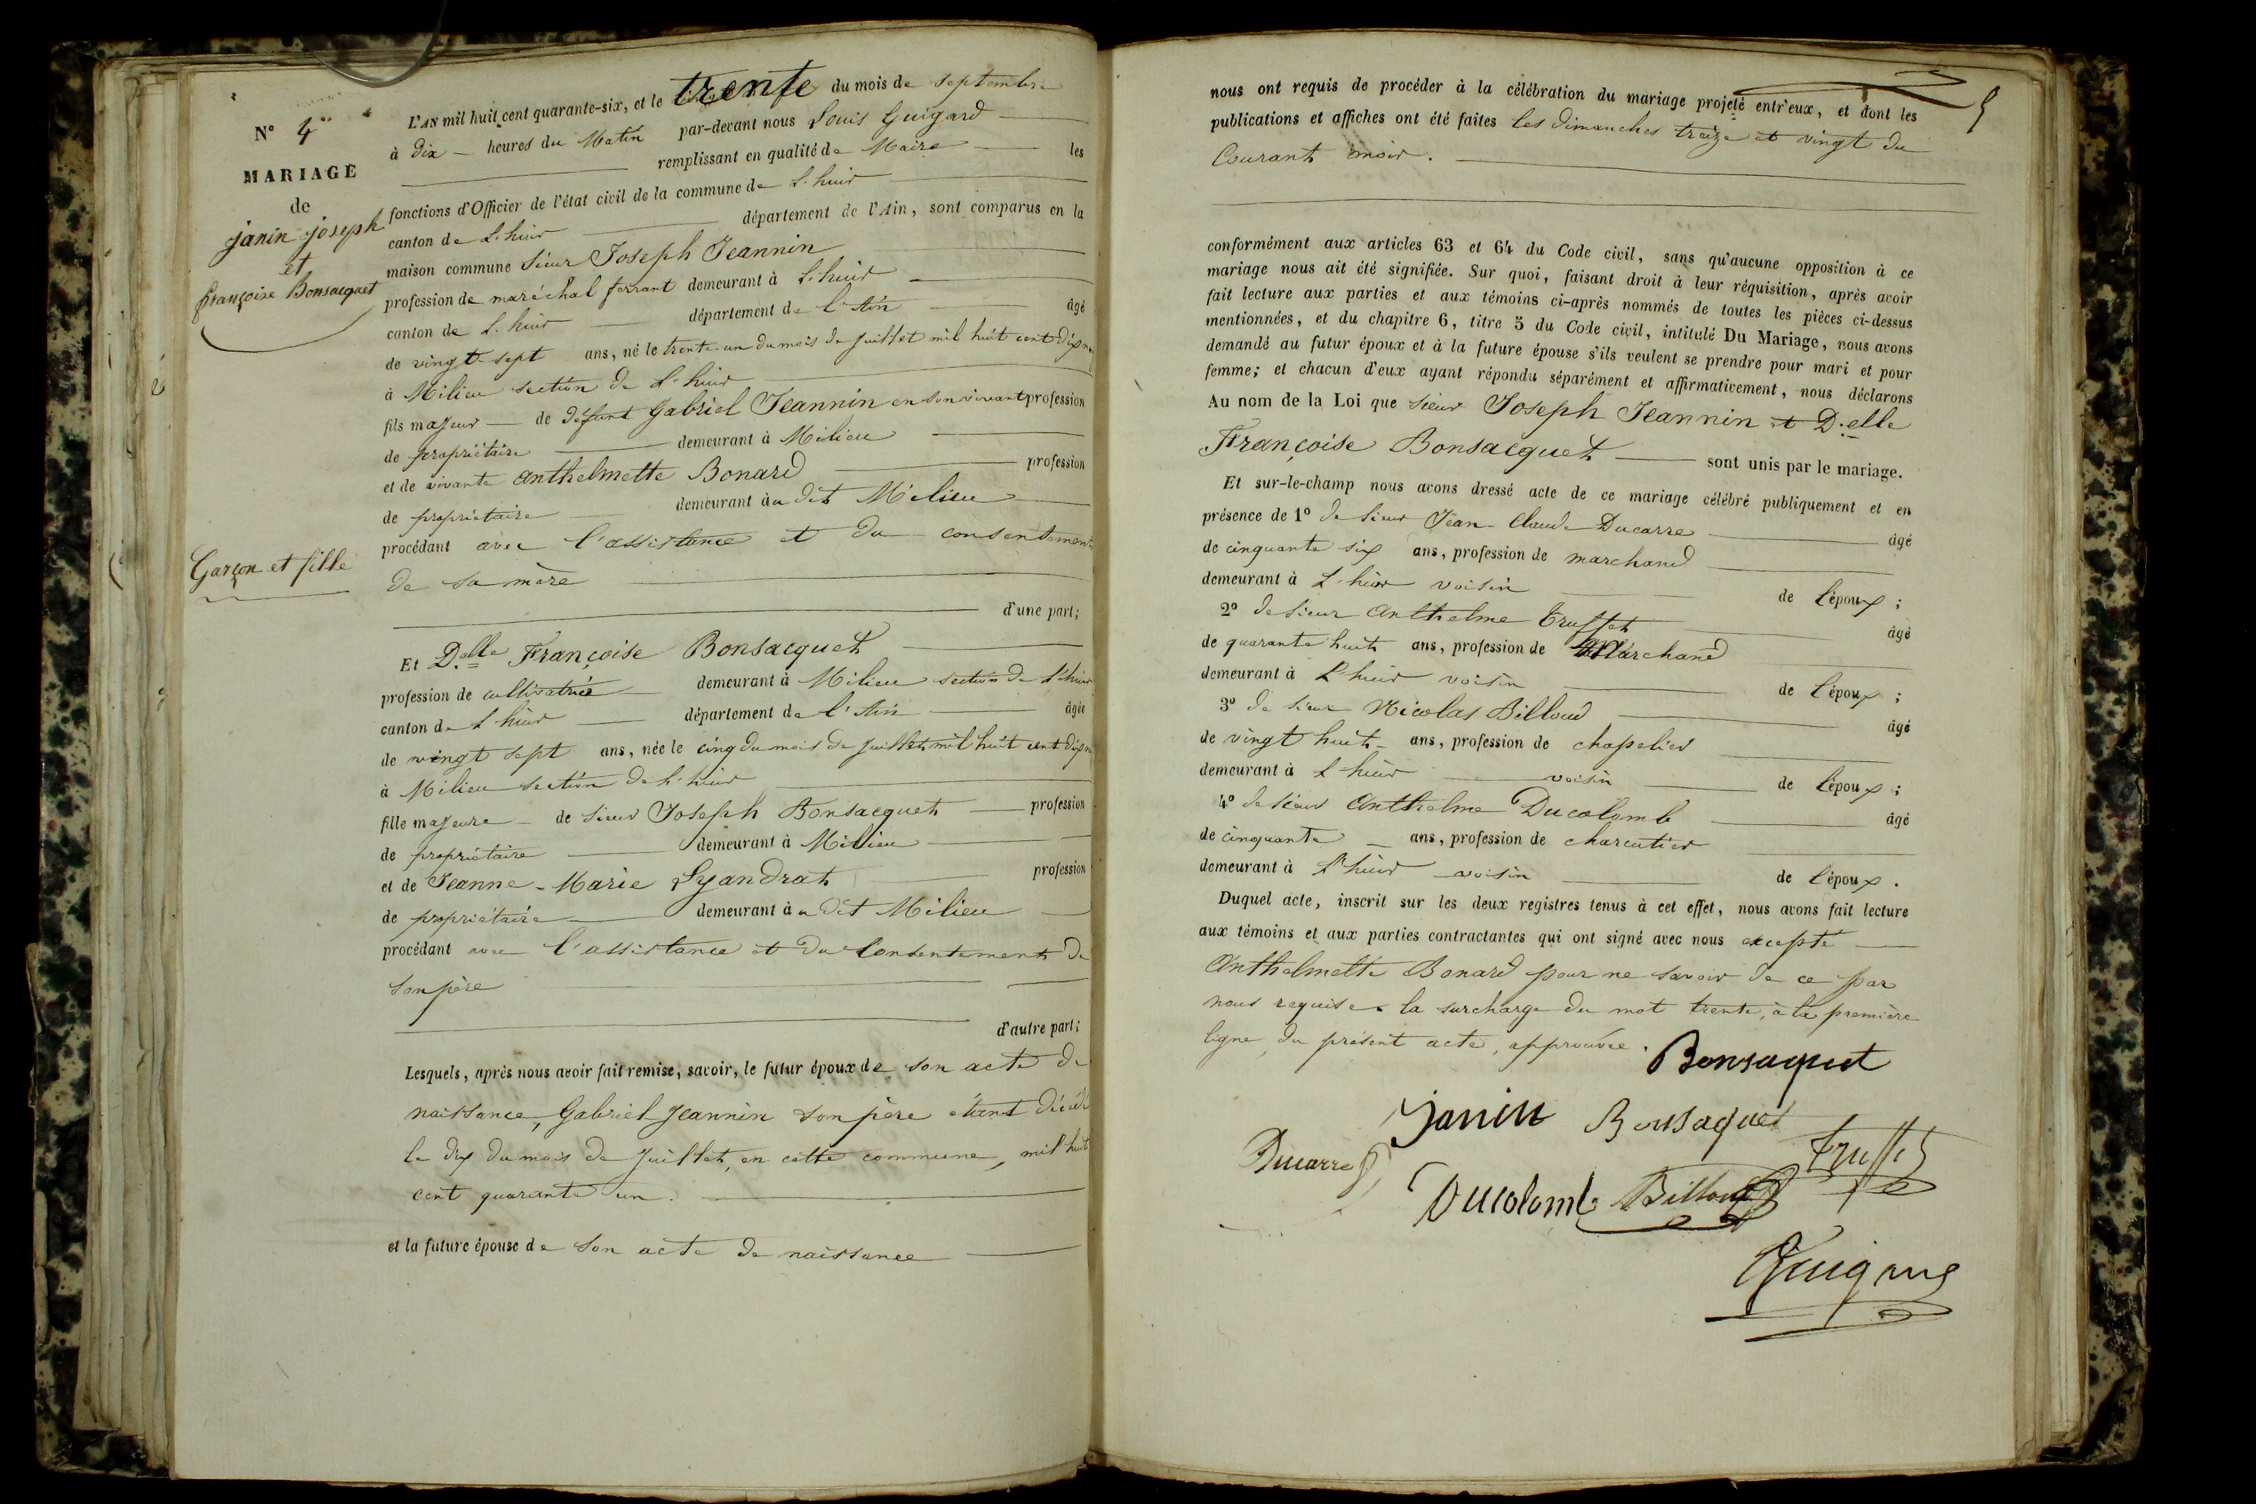 N° 4
MARIAGE
de
janin joseph
et
françoise Bonsacquet
Garçon et fille
L'AN mil huit cent quarante-six, et le trente du mois de septembre
à dix heures du Matin par-devant nous Louis Guigard
remplissant en qualité de Maire les
fonctions d'Officier de l'état civil de la commune de L'huis
canton de L'huis département de l'Ain, sont comparus en la
maison commune Sieur Joseph Jeannin
profession de maréchal ferrant demeurant à L'huis
canton de L'huis département de l'Ain âgé
de vingt-sept ans, né le trente-un du mois de juillet mil huit cent dix
à Milieu section de L'huis
fils majeur de défunt Gabriel Jeannin en son vivant profession
de propriétaire demeurant à Milieu
et de vivante anthelmette Bonard profession
de propriétaire demeurant à u dit Milieu
procédant avec l'assistance et du consentement
de sa mère
d'une part;
Et D.elle Françoise Bonsacquet
profession de cultivatrice demeurant à Milieu section de L'huis
canton de L'huis département de l'Ain âgée
de vingt sept ans, née le cinq du mois de juillet mil huit cent dix
à Milieu section de L'huis
fille majeure de sieur Joseph Bonsacquet profession
de propriétaire demeurant à Milieu
et de Jeanne-Marie Lyandrat profession
de propriétaire demeurant à u dit Milieu
procédant avec l'assistance et du Consentement de
son père
d'autre part;
Lesquels, après nous avoir fait remise, savoir, le futur époux de son acte de
naissance, Gabriel Jeannin son père étant décédé
le dix du mois de juillet, en cette commune, mil huit
cent quarante un.
et la future épouse de son acte de naissance
nous ont requis de procéder à la célébration du mariage projeté entr'eux, et dont les
publications et affiches ont été faites les dimanches treize et vingt du
Courant mois.
conformément aux articles 63 et 64 du Code civil, sans qu'aucune opposition à ce
mariage nous ait été signifiée. Sur quoi, faisant droit à leur réquisition, après avoir
fait lecture aux parties et aux témoins ci-après nommés de toutes les pièces ci-dessus
mentionnées, et du chapitre 6, titre 5 du Code civil, intitulé Du Mariage, nous avons
demandé au futur époux et à la future épouse s'ils veulent se prendre pour mari et pour
femme; et chacun d'eux ayant répondu séparément et affirmativement, nous déclarons
Au nom de la Loi que sieur Joseph Jeannin et D.elle
Françoise Bonsacquet sont unis par le mariage.
Et sur-le-champ nous avons dressé acte de ce mariage célébré publiquement et en
présence de 1° de Sieur Jean-Claude Ducarre âgé
de cinquante six ans, profession de marchand
demeurant à L'huis voisin de l'époux;
2° de sieur Anthelme Truffet âgé
de quarante huit ans, profession de Marchand
demeurant à L'huis voisin de l'époux;
3° de sieur Nicolas Billoud âgé
de vingt huit ans, profession de chapelier
demeurant à L'huis voisin de l'époux;
4° de sieur Anthelme Ducolomb âgé
de cinquante ans, profession de charcutier
demeurant à L'huis voisin de l'époux.
Duquel acte, inscrit sur les deux registres tenus à cet effet, nous avons fait lecture
aux témoins et aux parties contractantes qui ont signé avec nous excepté
Anthelmette Bonard pour ne savoir de ce par
nous requise. la surcharge du mot trente, à la première
ligne, du présent acte, approuvée.
Bonsaquet
Janin Bonsaquet
Ducarre Truffet
Ducolomb Billoud
Guigard